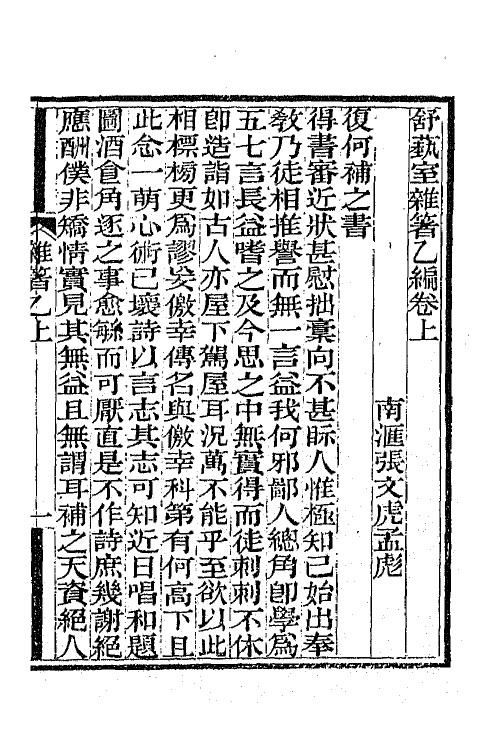 舒藝室雜箸乙編卷上
南滙張文虎孟彪
復何補之書
得書審近狀甚慰拙稾向不甚眎人惟極知己始出奉
敎乃徒相推譽而無一言益我何邪鄙人總角卽學爲
五七言長益嗜之及今思之中無實得而徒刺刺不休
卽造詣如古人亦屋下駕屋耳況萬不能乎至欲以此
相標榜更爲謬妄儌幸傳名與儌幸科第有何高下且
此念一萌心術已壞詩以言志其志可知近日唱和題
圖酒食角逐之事愈緐而可厭直是不作詩庶幾謝絕
應酬僕非矯情實見其無益且無謂耳補之天資絕人
雜箸乙上
一